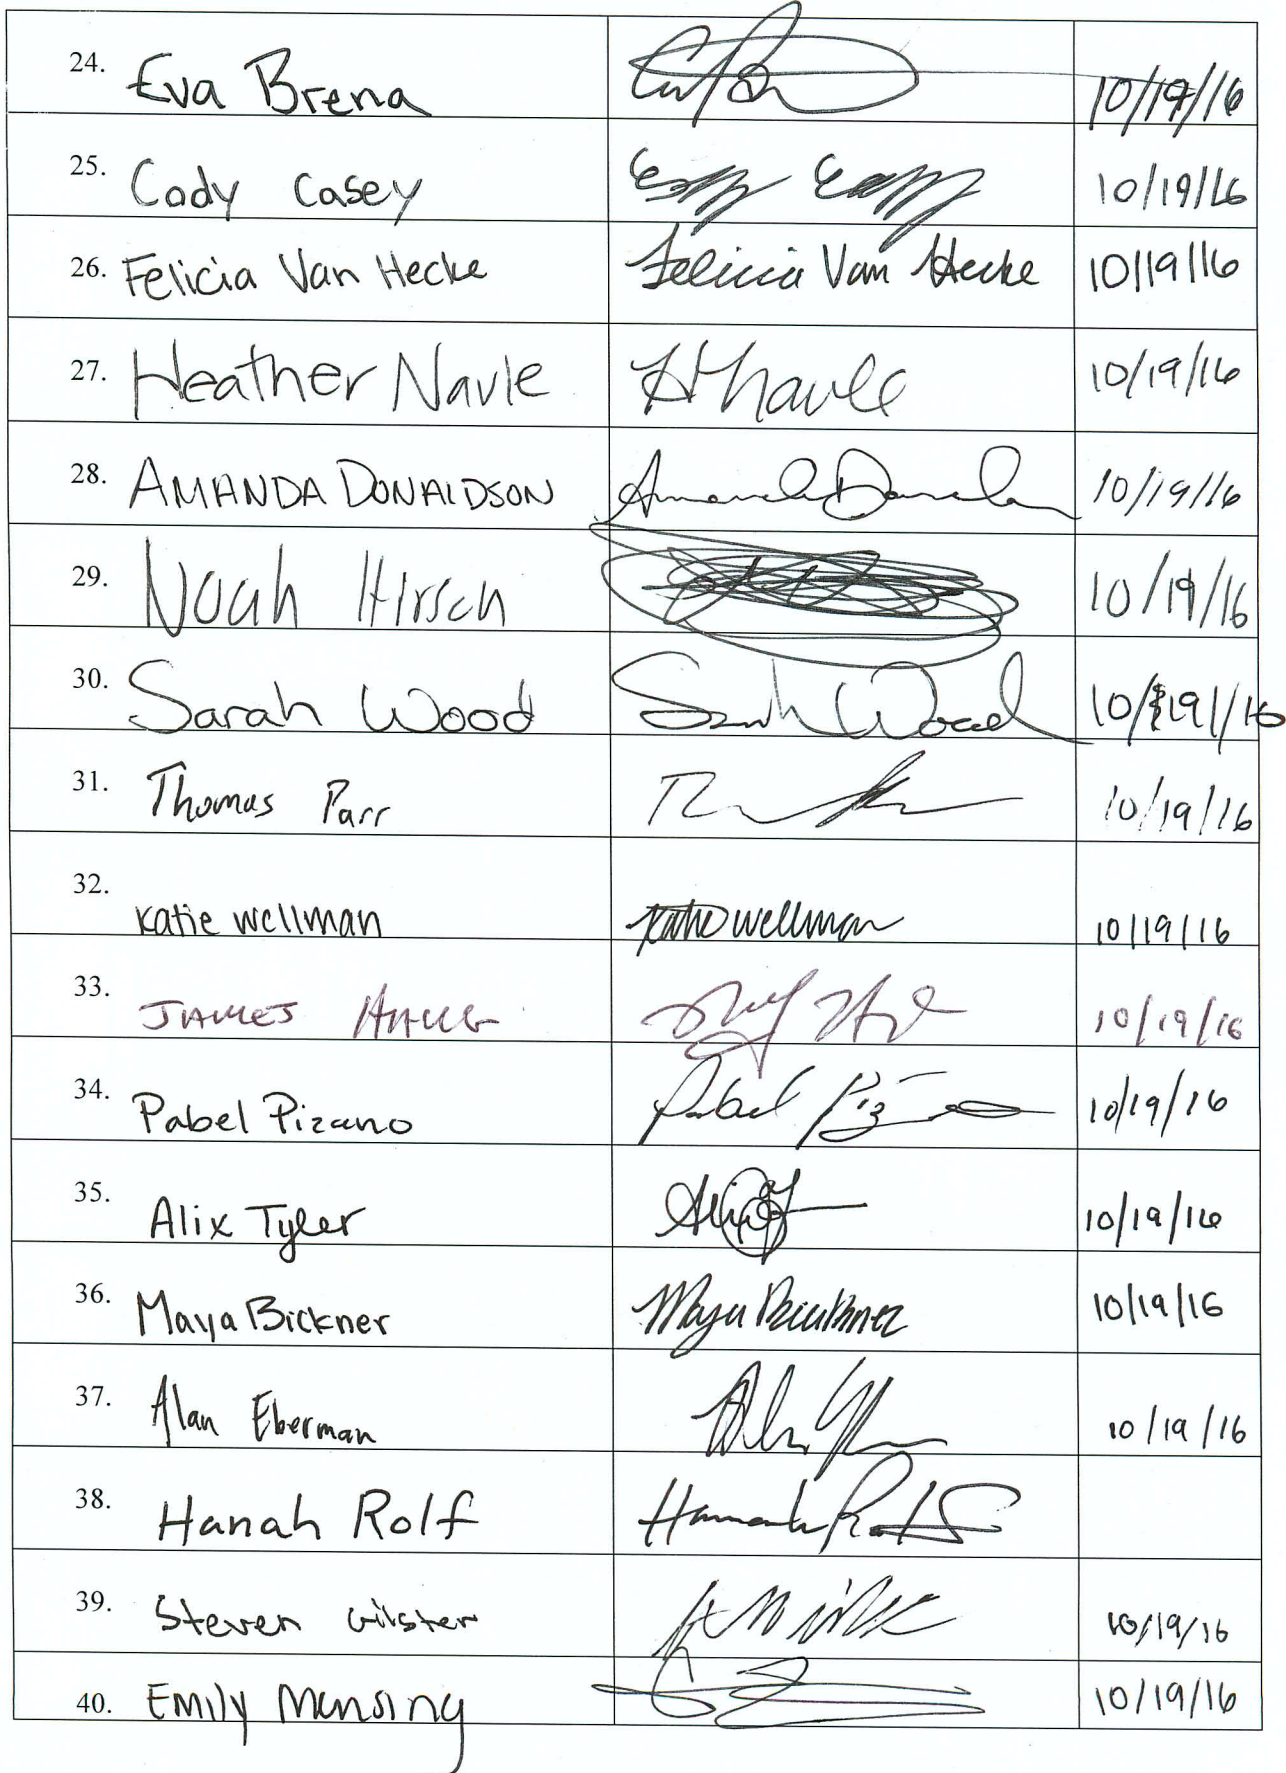 24. Eva Brena 10/19/16
25. Cody Casey 10/19/16
26. Felicia Van Hecke Felicia Van Hecke 10/19/16
27. Heather Navle HNavle 10/19/16
28. AMANDA DONALDSON 10/19/16
29. Noah Hirsch 10/19/16
30. Sarah Wood Sarah Wood 10/19/16
31. Thomas Parr 10/19/16
32. Katie Wellman Katie Wellman 10/19/16
33. JAMES 10/19/16
34. Pabel Pizano Pabel 10/19/16
35. Alix Tyler 10/19/16
36. Maya Bickner Maya Bickner 10/19/16
37. Alan Eberman 10/19/16
38. Hanah Rolf
39. Steven Gilster 10/19/16
40. Emily Mensing 10/19/16